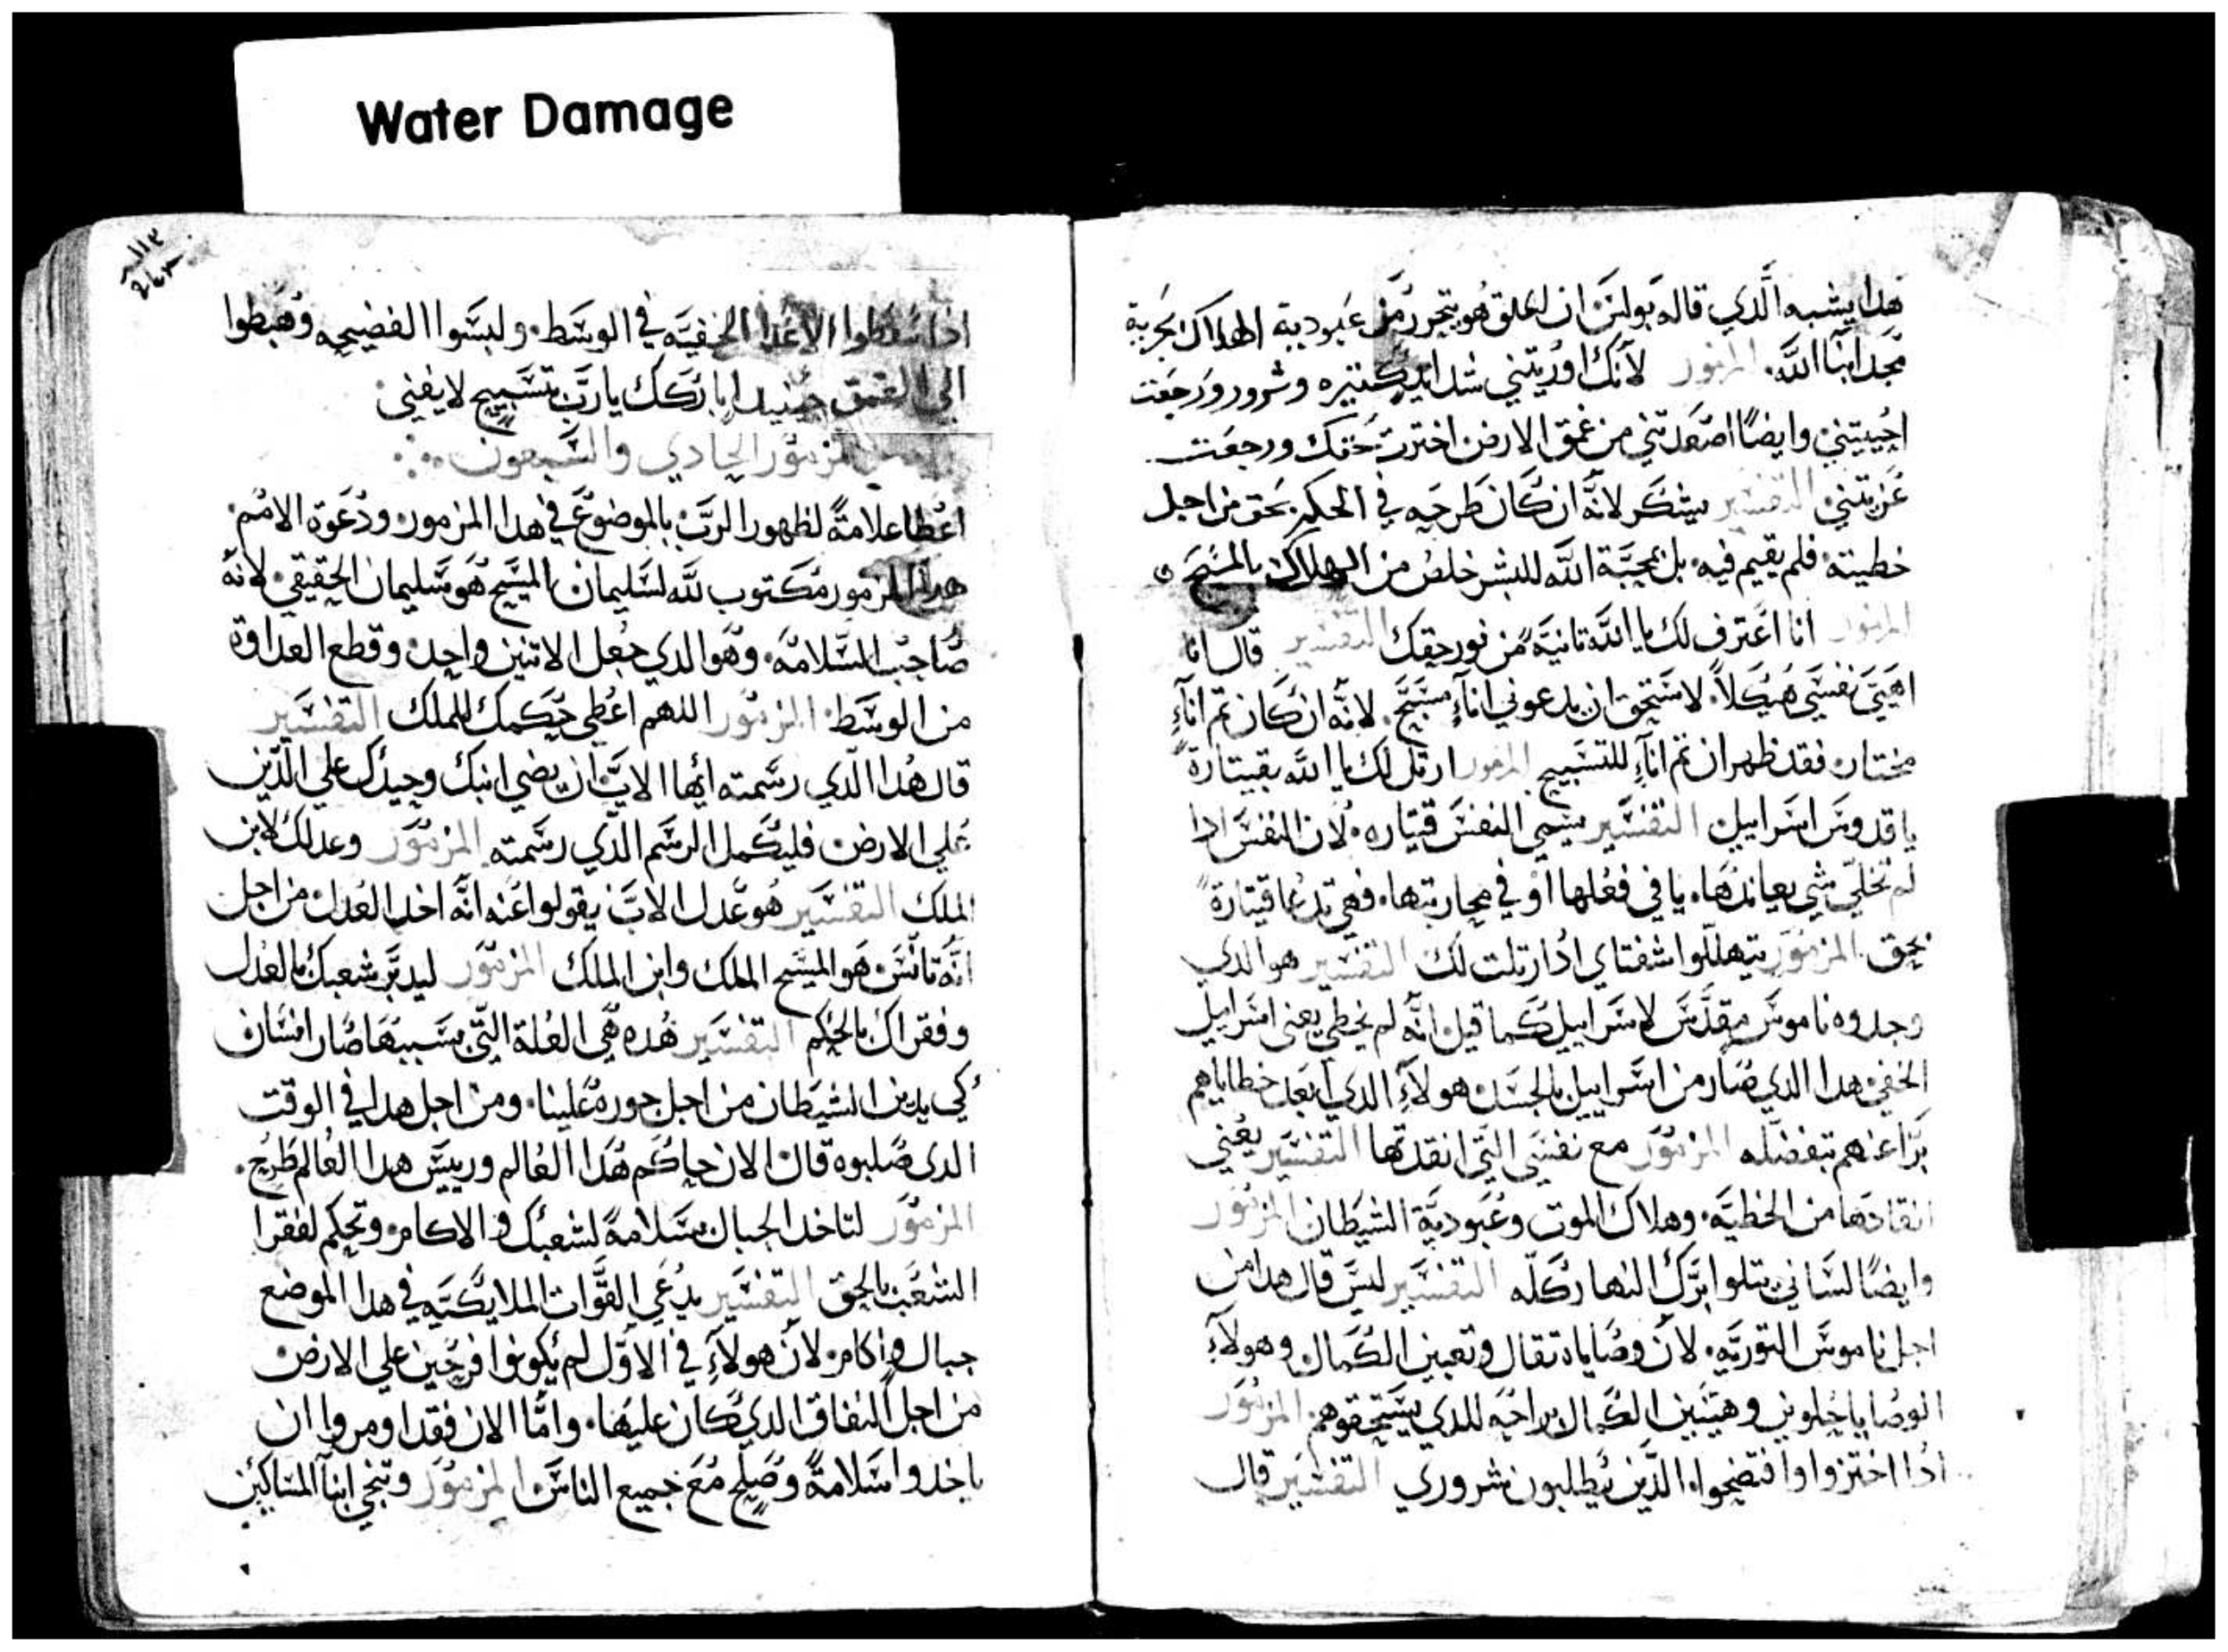 Water Damage
هدا يشبه الدي قاله بولس ان الخلق هو يتحرر من عبودية الهلاك بحرية
مجد ابنا الله المزمور لانك اوريتني شدايد كتيره وشرور ورجعت
احييتني وايضا اصعدتني من عمق الارض اخترت حقك ورجعت
عزيتني التفسير يشكر لانه ان كان طرحه في الحكم بحق من اجل
خطيته فلم يقيم فيه بل بمحبة الله للبشر خلص من الهلاك بالمسيح
المزمور انا اعترف لك يا الله تانية من نور حقك التفسير قال انا
اهيي نفسي هيكلا لاستحق ان يدعوني اناء مسبح لانه ان كان تم اناء
مختار فقد ظهر ان تم اناء للتسبيح المزمور ارتل لك يا الله بقيتارة
يا قدوس اسراييل التفسير يسمي النفس قيتاره لان النفس ادا
لم تخلي شي يعاندها يا في فعلها او في محاربتها فهي تدعا قيتارة
بحق المزمور تيهللوا شفتاي ادا رتلت لك التفسير هو الدي
وجدوه ناموس مقدس لاسراييل كما قيل انه لم يخطي يعني اسراييل
الخفي هدا الدي صار من اسراييل بالجسد هولاء الدي ابعد خطاياهم
برا عنهم بتفضله المزمور مع نفسي التي انقدتها التفسير يعني
انقادها من الخطيه وهلاك الموت وعبودية الشيطان المزمور
وايضا لساني يتلوا برك النهار كله التفسير ليس قال هدا من
اجل ناموس التوريه لان وصاياه تقال وتعين الكمال وهولاء
الوصايا حلوين وهيتين الكمال براحه للدي يستحقوهم المزمور
ادا اختزوا وافتضحوا الدين يطلبون شروري التفسير قال
ادا سقطوا الاعدا الخفيه في الوسط ولبسوا الفضيحه وهبطوا
الي العمق حينيد اباركك يارب بتسبيح لا يفني
المزمور الحادي والسبعون
اعطا علامة لظهور الرب بالموضوع في هدا المزمور ودعوة الامم
هدا المزمور مكتوب لله لسليمان المسيح هو سليمان الحقيقي لانه
صاحب السلامه وهو الدي جعل الاتنين واحد وقطع العداوة
من الوسط المزمور اللهم اعطي حكمك للملك التفسير
قال هدا الدي رسمته ايها الاب ان يضي ابنك وحيدك علي الدين
علي الارض فليكمل الرسم الدي رسمته المزمور وعدلك لابن
الملك التفسير هو عدل الاب يقولوا عنه انه اخد العدل من اجل
انه تانس هو المسيح الملك وابن الملك المزمور ليدبر شعبك بالعدل
وفقراك بالحكم التفسير هده هي العلة التي بسببها صار انسان
لكي يدين الشيطان من اجل جوره علينا ومن اجل هدا في الوقت
الدي صلبوه قال الان حاكم هدا العالم ورييس هدا العالم طرح
المزمور لتاخد الجبال سلامة لشعبك والاكام وتحكم لفقرا
الشعب بالحق التفسير يدعي القوات الملايكيه في هدا الموضع
جبال واكام لان هولاء في الاول لم يكونوا فرحين علي الارض
من اجل النفاق الدي كان عليها واما الان فقد اومروا ان
ياخدوا سلامة وصلح مع جميع الناس المزمور وتنجي ابنا المساكين